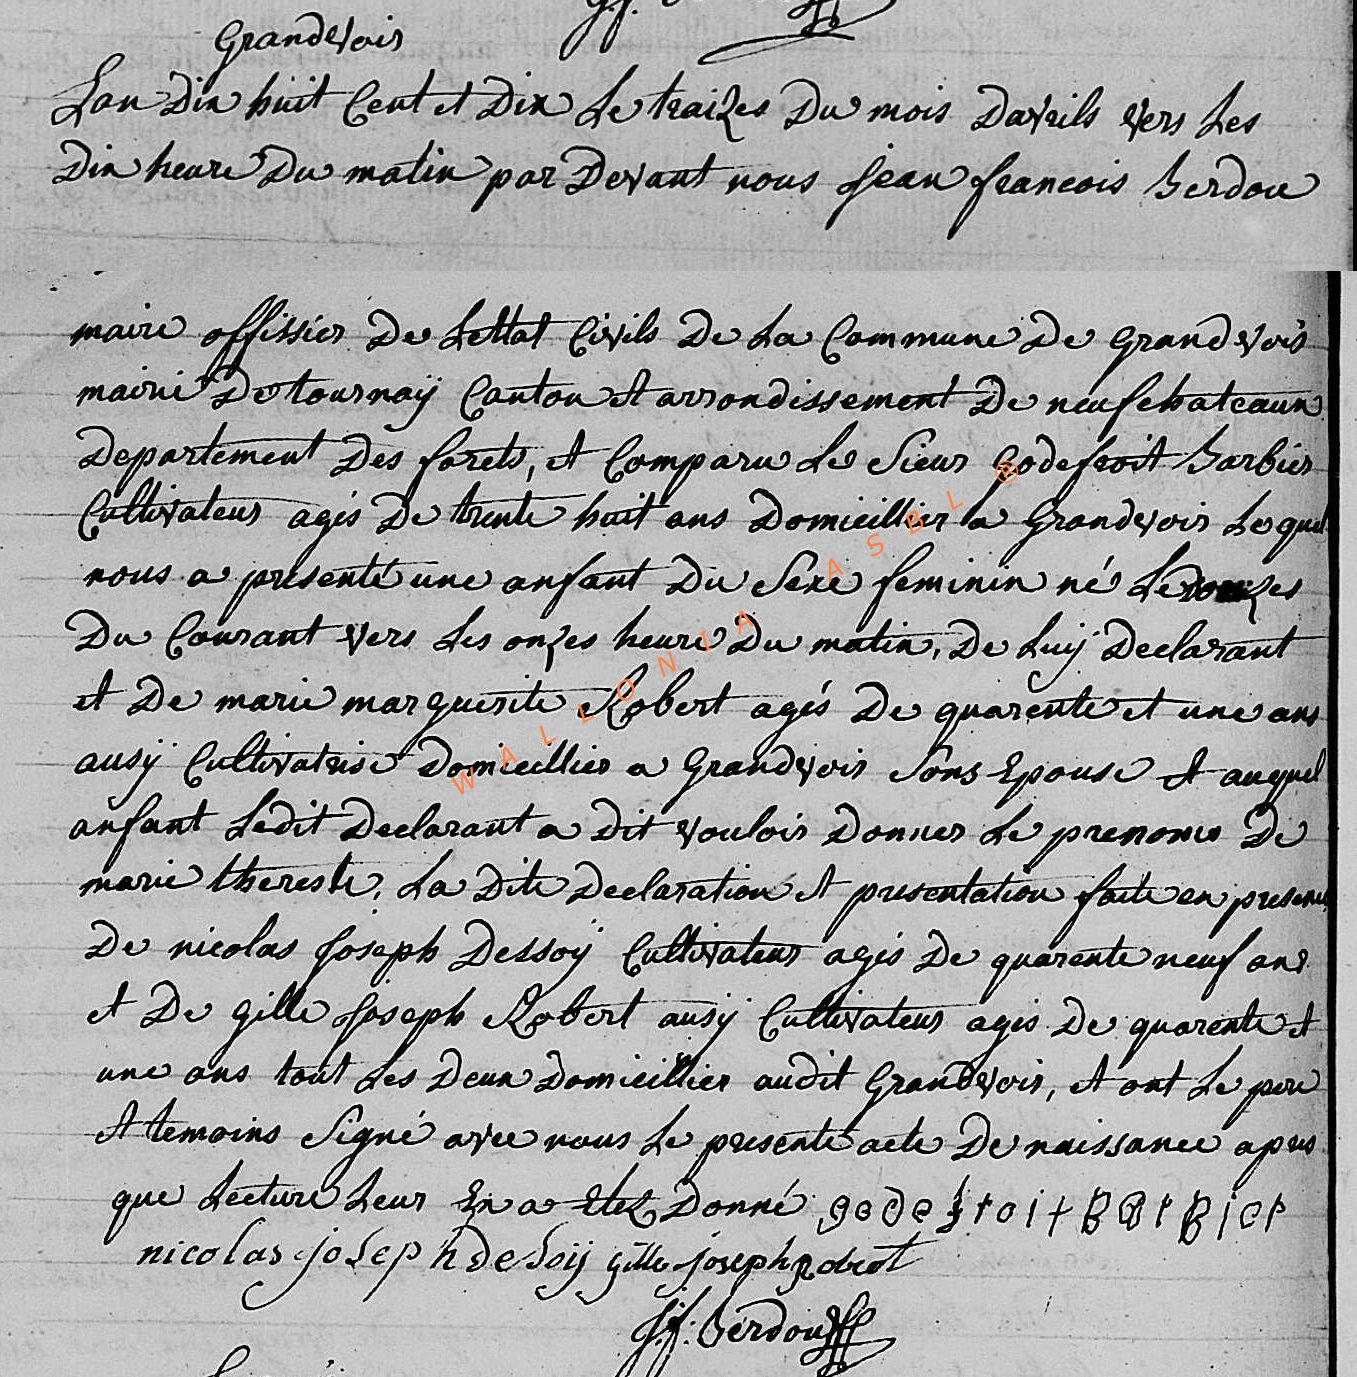 Grandvois
Lan Dix huit Cent et Dix Le traizes Du mois Davrils vers Les
Dix heure Du matin par Devant nous Jean francois Berdou
maire offissier De Lettat Civils De La Commune De Grandvois
mairie De tournaÿ Canton et arrondissement De neufchateaux
Departement Des forets, et Comparu Le Sieur Godefroit Barbier
Cultivateur agés De trente huit ans Domicillier a Grandvois Lequel
nous a presenté une anfant Du Sexe feminin né Le
Du Courant vers Les onzes heure Du matin, De Luÿ Declarant
et De marie marguerite Robert agés De quarente et une ans
ausÿ Cultivatrise Domicillier a Grandvois Sons Epouse et auquel
anfant Ledit Declarant a Dit vouloir Donner Le prenoms De
marie thereste, La Dite Declaration et presentation faite en presence
De nicolas Joseph Dessoÿ Cultivateur agés De quarente neuf ans
et De gille Joseph Robert ausÿ Cultivateur agés De quarente et
une ans tout Les Deux Domicillier audit Grandvois, et ont Le pere
et temoins Signé avec nous Le presente acte De naissance apres
que Lecture Leur En a Etez Donné godefroit BarBier
nicolas joseph deSoiÿ gille joseph Robert
J. f. Berdou
WALLONIA ASBL ®